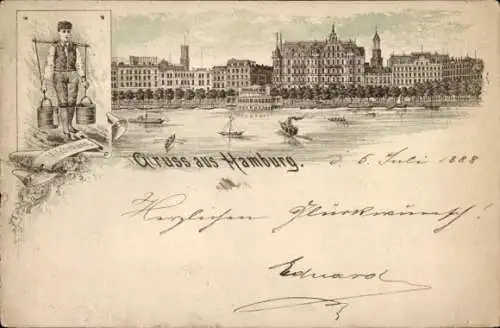 Gruss aus Hamburg.
d 5. Juli 1888
Herzlichen Glückwunsch!
Eduard